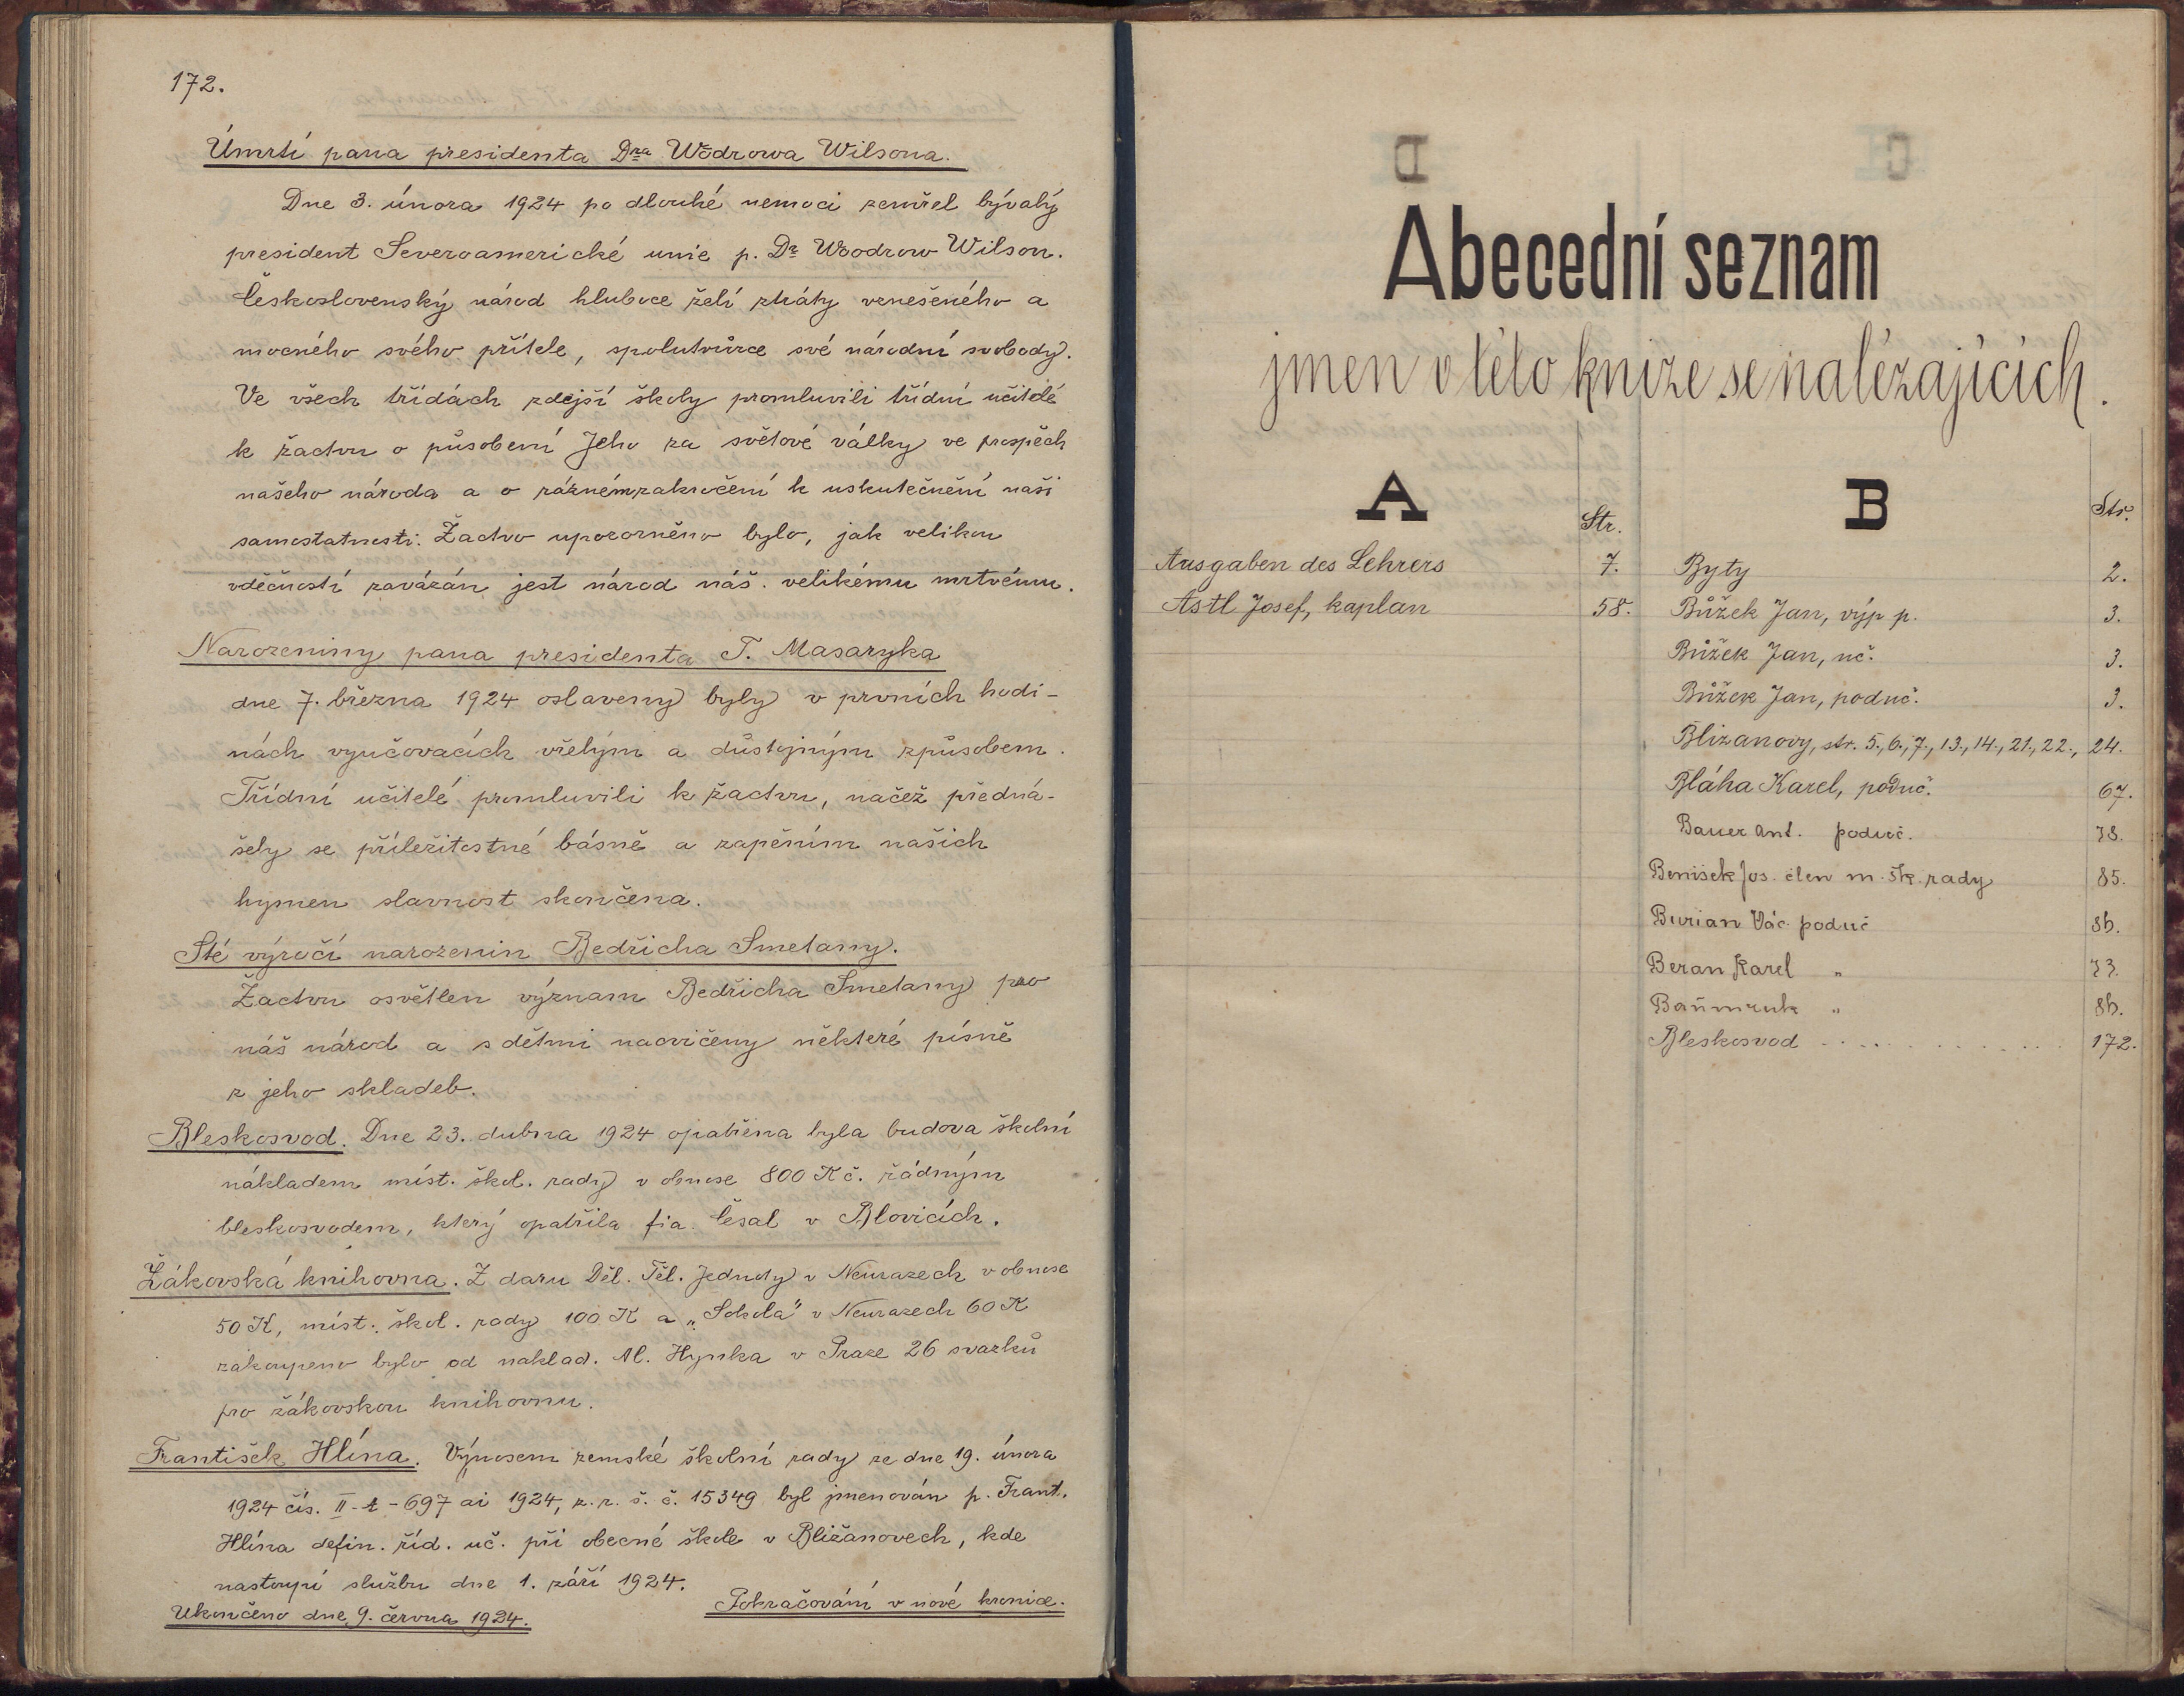 172.
Úmrtí pana presidenta Dra Woodrowa Wilsona.
Dne 3. února 1924 po dlouhé nemoci zemřel bývalý
president Severoamerické unie p. Dr Woodrow Wilson.
Československý národ hluboce želí ztráty vznešeného a
mocného svého přítele, spolutvůrce své národní svobody.
Ve všech třídách zdejší školy promluvili třídní učitelé
k žactvu o působení Jeho za světové války ve prospěch
našeho národa a o rázném zakročení k uskutečnění naší
samostatnosti. Žactvo upozorněno bylo, jak velikou
vděčností zavázán jest národ náš velikému mrtvému.
Narozeniny pana presidenta T. Masaryka
dne 7. března 1924 oslaveny byly v prvních hodi-
nách vyučovacích vřelým a důstojným způsobem.
Třídní učitelé promluvili k žactvu, načež předná-
šely se příležitostné básně a zapěním našich
hymen slavnost skončena.
Sté výročí narozenin Bedřicha Smetany.
Žactvu osvětlen význam Bedřicha Smetany pro
náš národ a s dětmi nacvičeny některé písně
z jeho skladeb.
Bleskosvod. Dne 23. dubna 1924 opatřena byla budova školní
nákladem míst. škol. rady v obnose 800 Kč. řádným
bleskosvodem, který opatřila fia. Česal v Blovicích.
Žákovská knihovna. Z daru Děl. Těl. Jednoty v Neurazech v obnose
50 K, míst. škol. rady 100 K a „Sokola" v Neurazech 60 K
zakoupeno bylo od naklad. Al. Hynka v Praze 26 svazků
pro žákovskou knihovnu.
František Hlína. Výnosem zemské školní rady ze dne 19. února
1924 čís. II-A-697 ai 1924, z. r. š. č. 15349 byl jmenován p. Frant.
Hlína defin. říd. uč. při obecné škole v Bližanovech, kde
nastoupí službu dne 1. září 1924.
Ukončeno dne 9. června 1924.
Pokračování v nové kronice.
Abecední seznam
jmen v této knize se nalézajících.
A
Str.
Ausgaben des Lehrers 7.
Astl Josef, kaplan 58.
B
Str.
Byty 2.
Bůžek Jan, výp p. 3.
Bůžek Jan, uč. 3.
Bůžek Jan, poduč. 3.
Bližanovy, str. 5., 6., 7., 13., 14., 21., 22., 24.
Bláha Karel, poduč. 67.
Bauer Ant. poduč. 78.
Benišek Jos. člen m. šk. rady 85.
Burian Vác. poduč 86.
Beran Karel „ 73.
„ 86.
Bleskosvod . . . . . . . . . . . . 172.